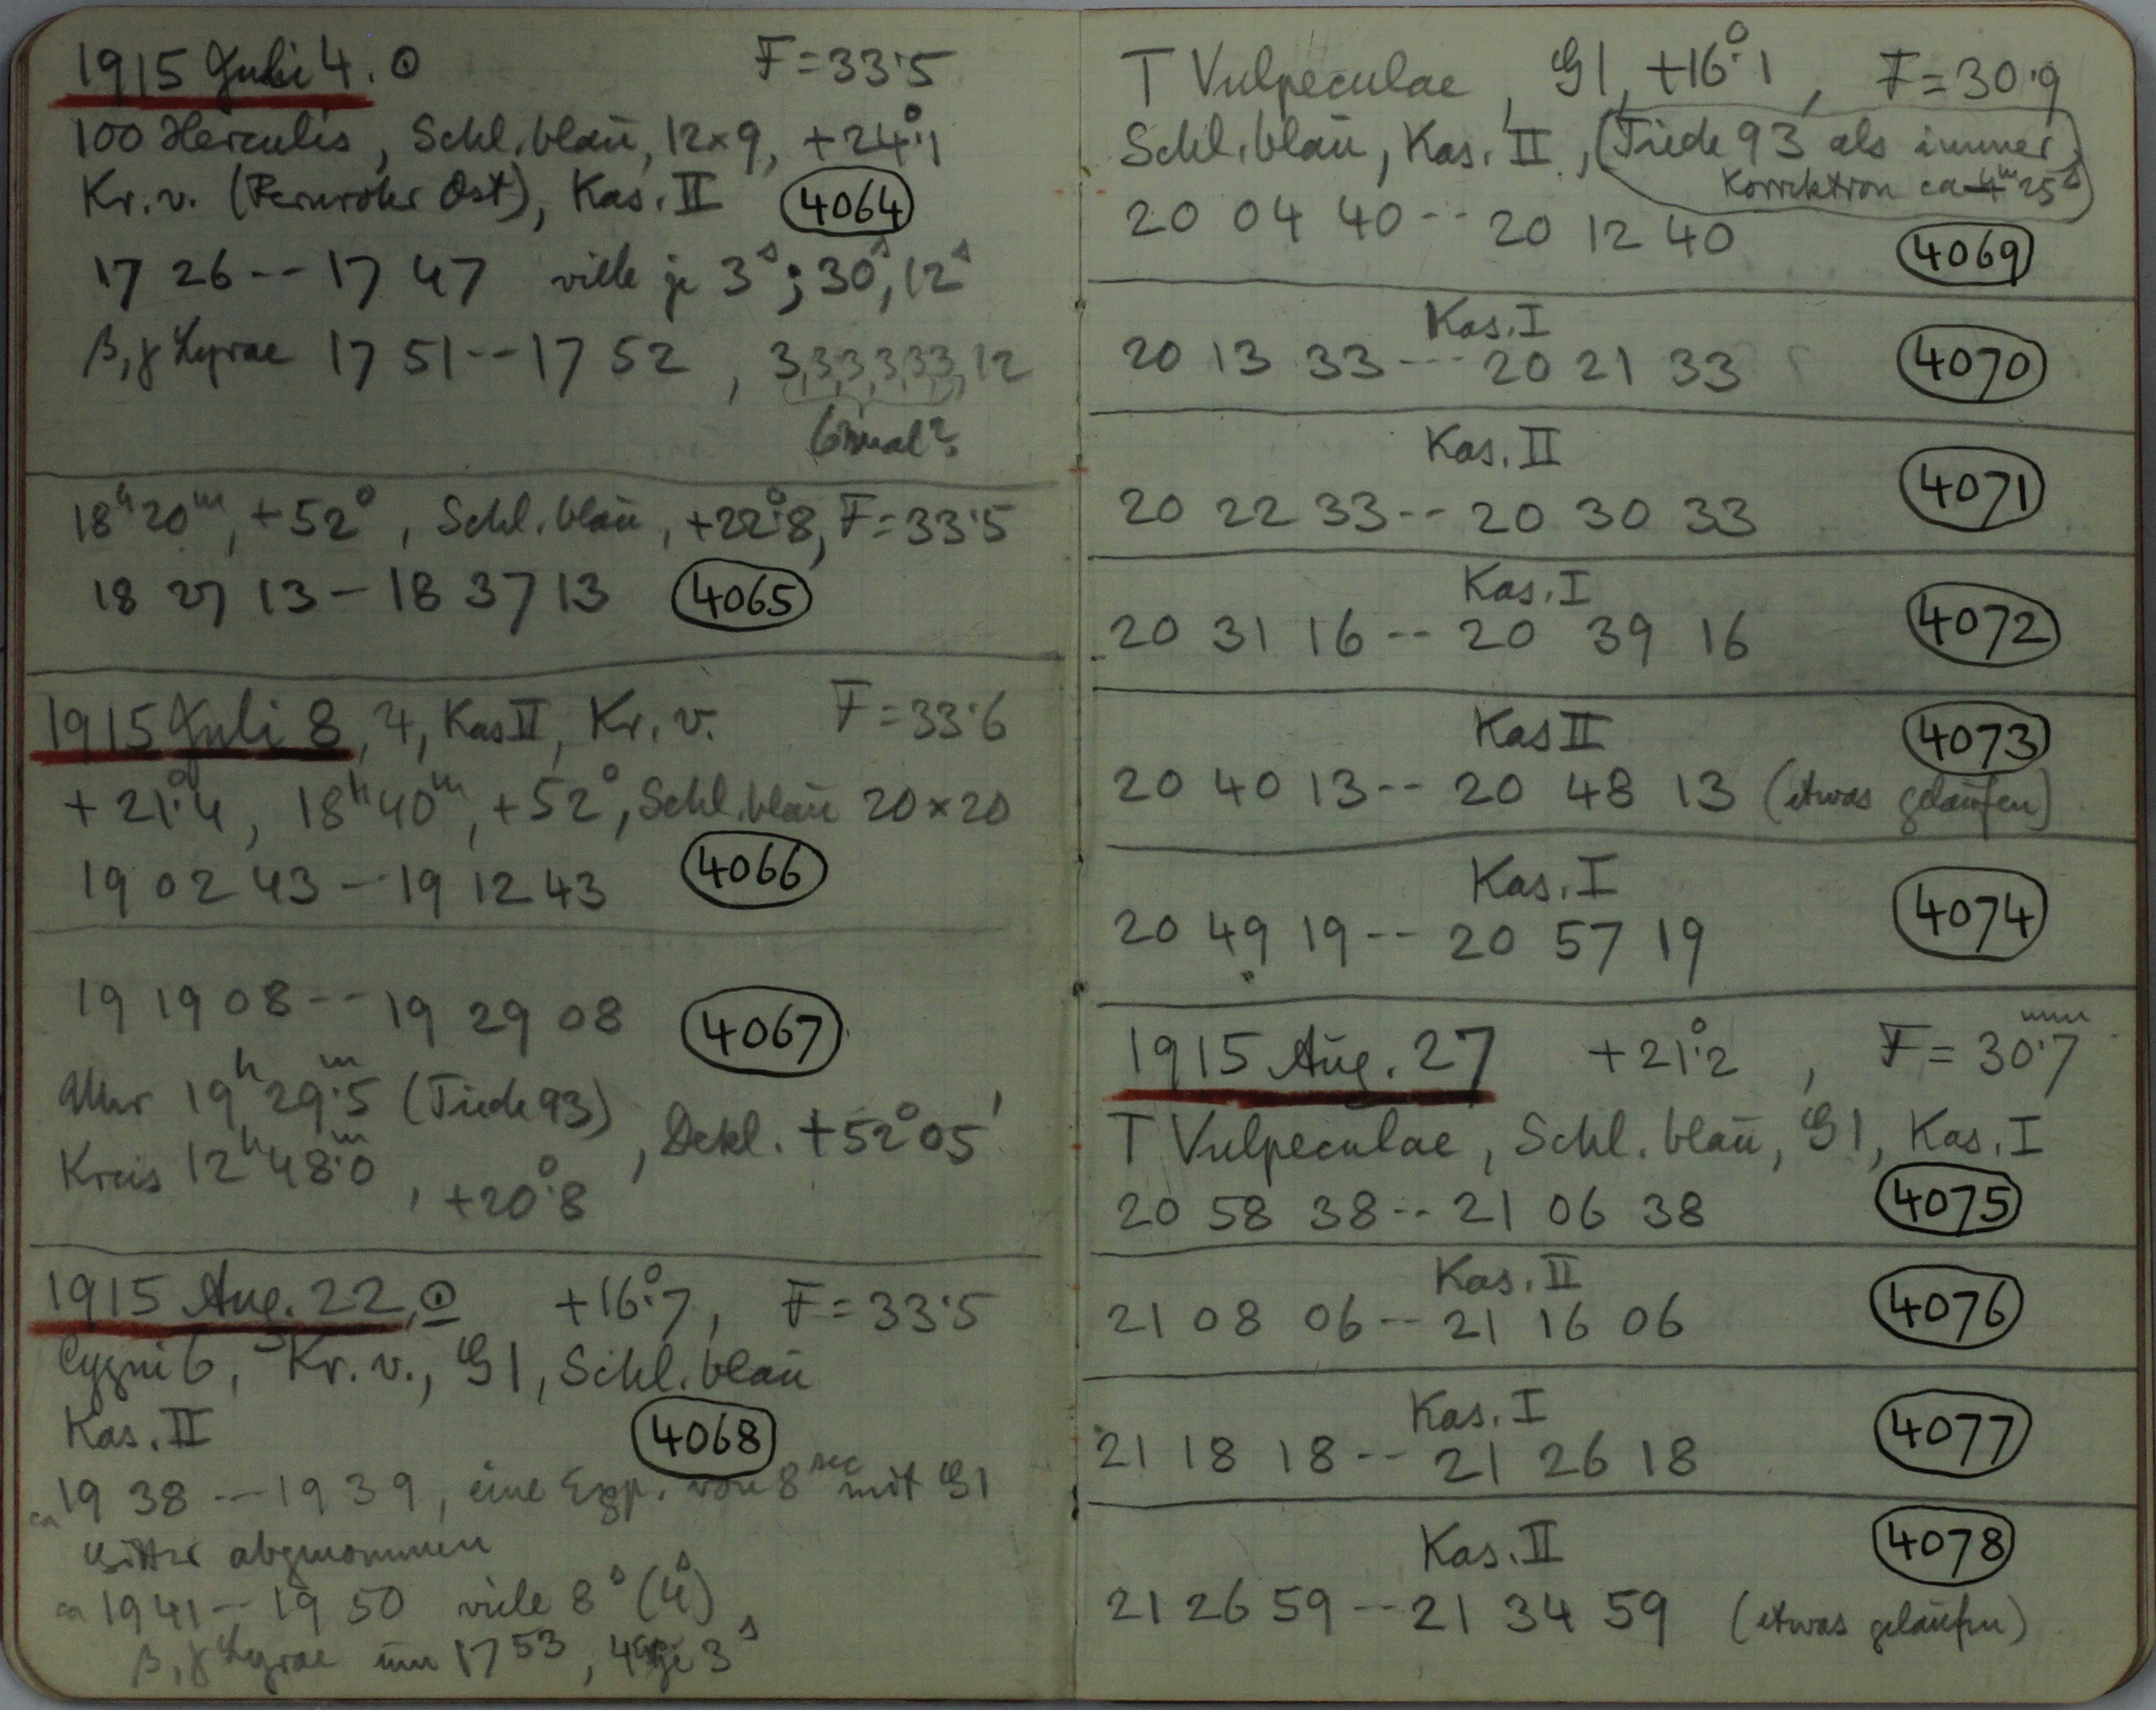 1915 Juli 4. ☉ F = 33.5
100 Herculis, Schl. blau, 12×9, +24°.1
Kr. v. (Fernrohr Ost), Kas. II 4064
17 26 -- 17 47 viele je 3ˢ; 30ˢ, 12ˢ
β, γ Lyrae 17 51 -- 17 52, 3,3,3,3,3,3,12
6 mal?
18ʰ 20ᵐ, +52°, Schl. blau, +22°.8, F = 33.5
18 27 13 - 18 37 13 4065
1915 Juli 8, ♃, Kas II, Kr. v. F = 33.6
+21°.4, 18ʰ 40ᵐ, +52°, Schl. blau 20×20
19 02 43 - 19 12 43 4066
19 19 08 -- 19 29 08 4067
Uhr 19ʰ 29ᵐ.5 (Tiede 93)
Kreis 12ʰ 48ᵐ.0, +20°.8, Dekl. +52° 05'
1915 Aug. 22, ☉ +16°.7, F = 33.5
Cygni 6, Kr. v., G1, Schl. blau
Kas. II 4068
ca 19 38 -- 19 39, eine Exp. von 8 sec mit G1
Gitter abgenommen
ca 19 41 -- 19 50 viele 8ˢ (4ˢ)
β, γ Lyrae um 17 53, 4 je 3ˢ
T Vulpeculae, G1, +16°.1, F = 30.9
Schl. blau, Kas. II, (Tiede 93 als immer,
Korrektion ca 4ᵐ 25ˢ)
20 04 40 -- 20 12 40 4069
Kas. I
20 13 33 --- 20 21 33 4070
Kas. II
20 22 33 -- 20 30 33 4071
Kas. I
20 31 16 -- 20 39 16 4072
Kas II 4073
20 40 13 -- 20 48 13 (etwas gelaufen)
Kas. I
20 49 19 -- 20 57 19 4074
1915 Aug. 27 +21°.2, F = 30.7 mm
T Vulpeculae, Schl. blau, G1, Kas. I
20 58 38 -- 21 06 38 4075
Kas. II
21 08 06 -- 21 16 06 4076
Kas. I
21 18 18 -- 21 26 18 4077
Kas. II 4078
21 26 59 -- 21 34 59 (etwas gelaufen)